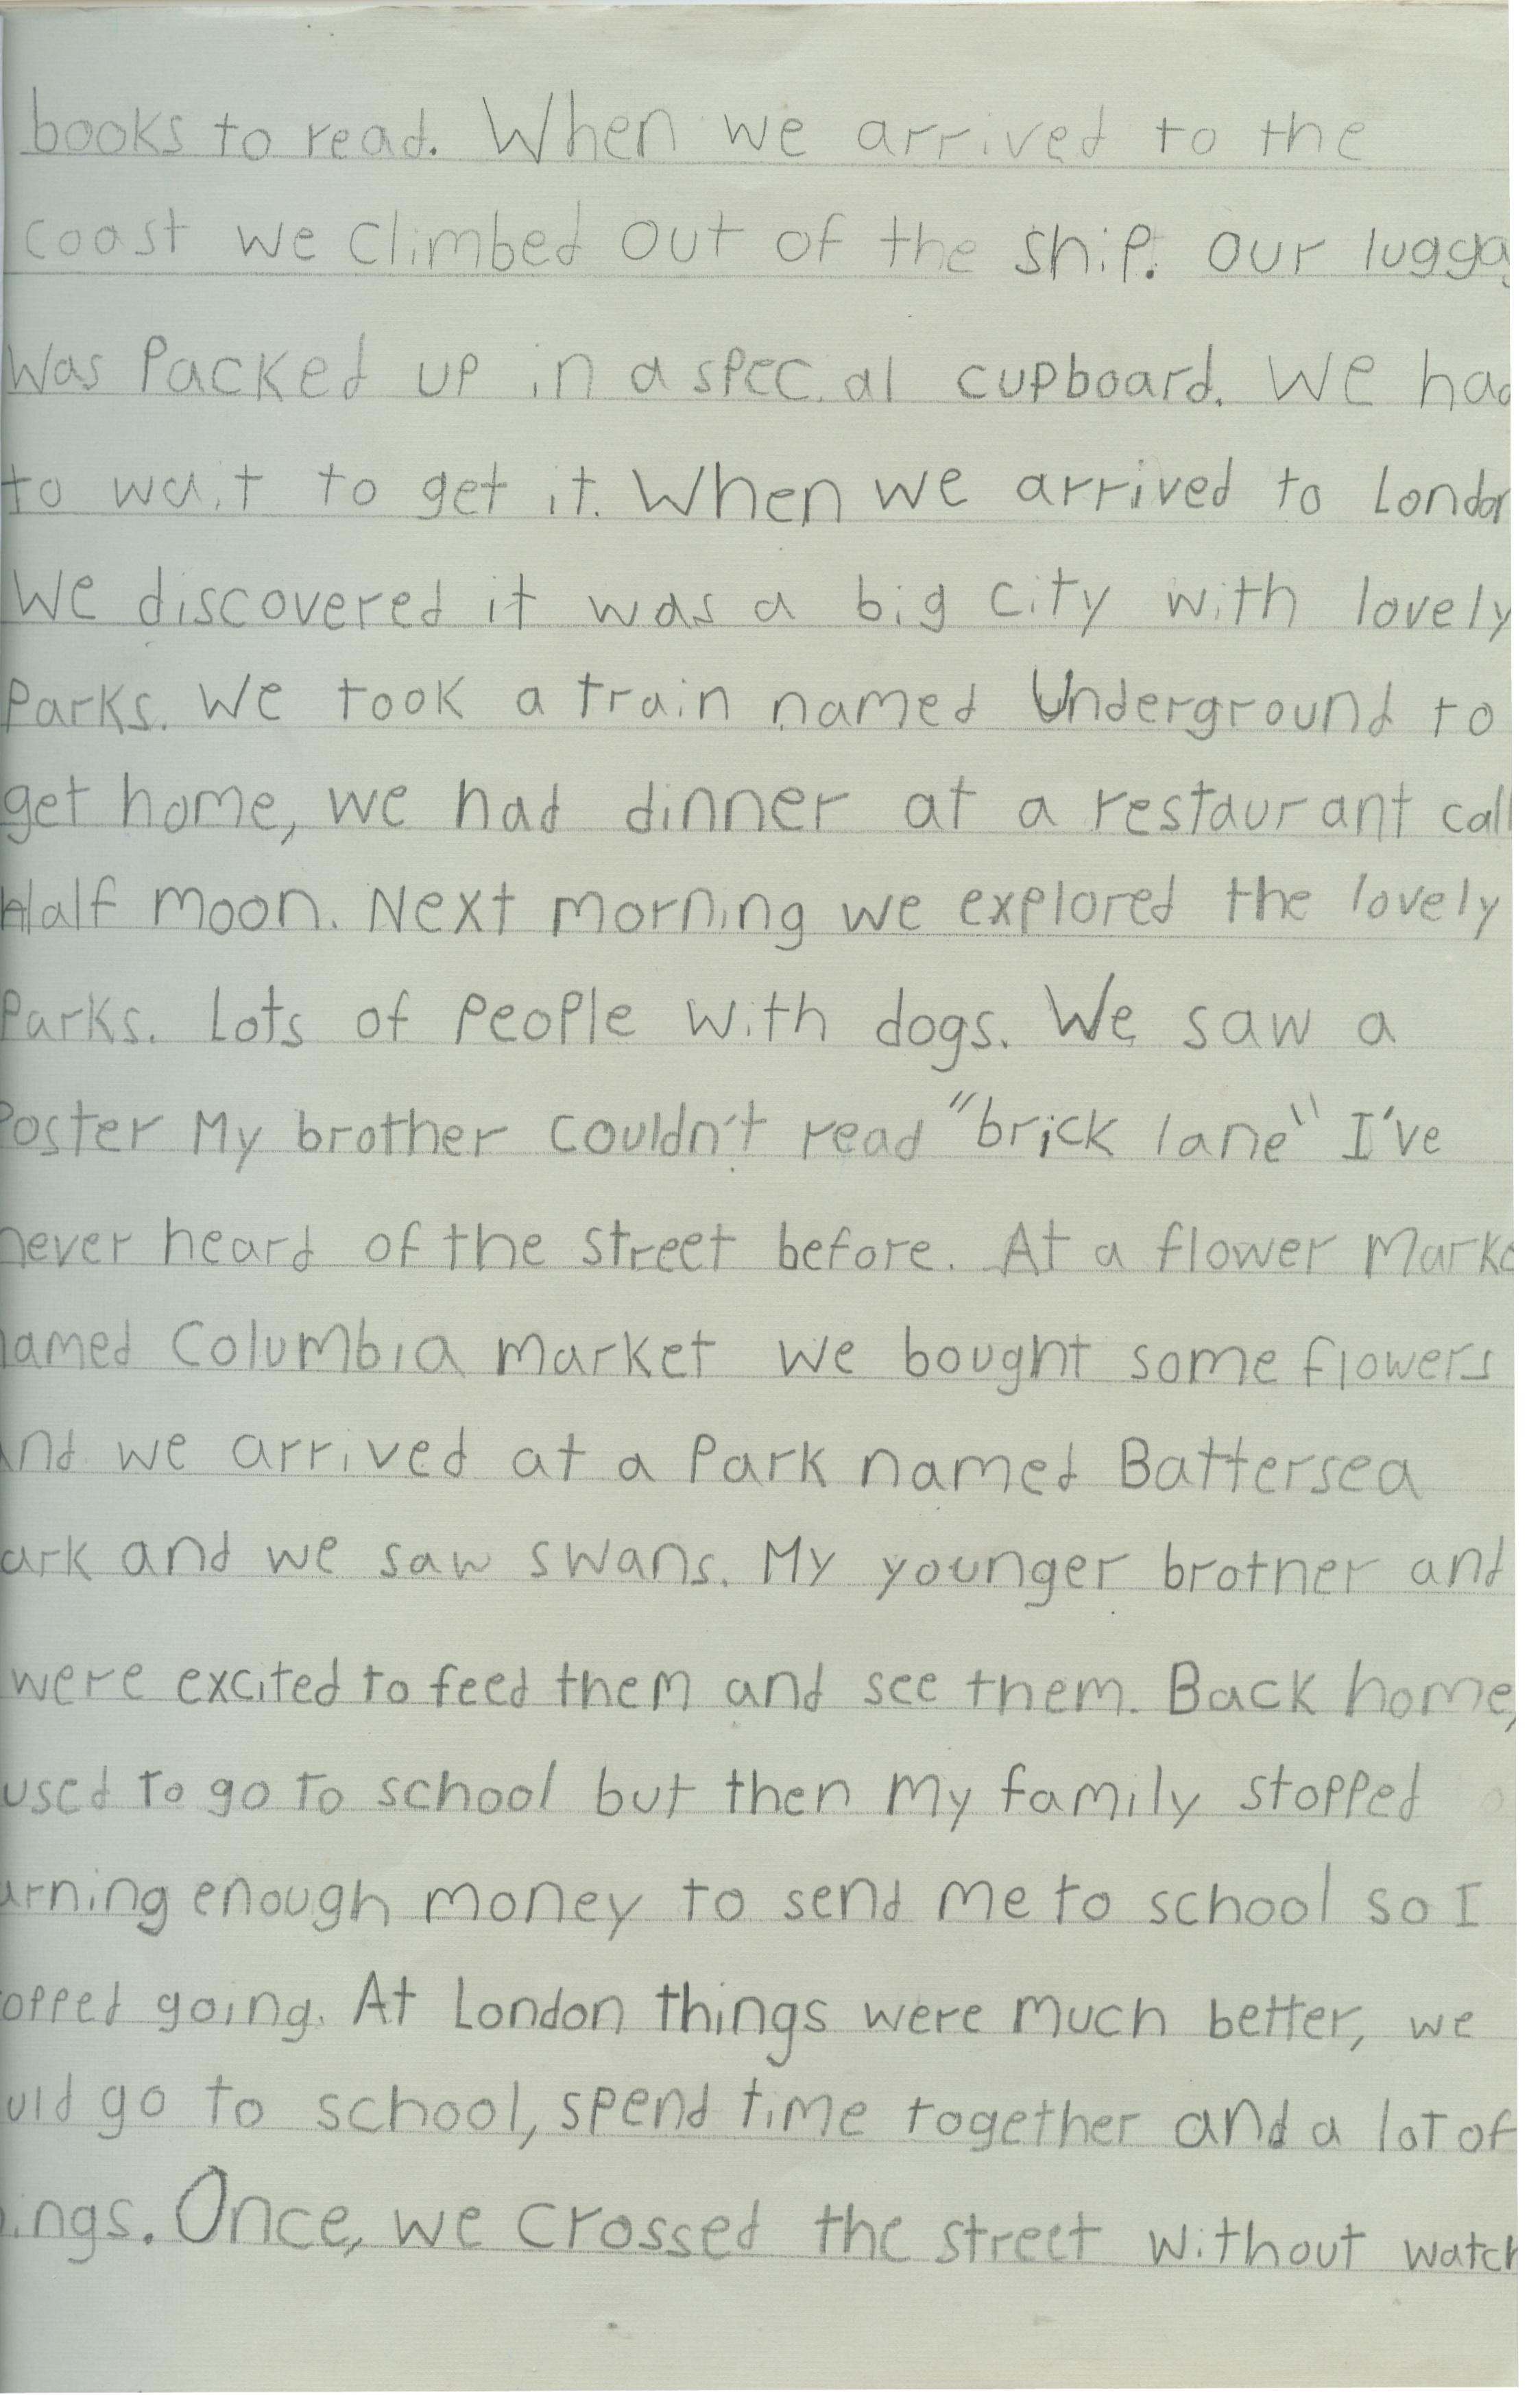 books to read. When we arrived to the
coast we climbed out of the ship. Our lugga
Was Packed up in a special cupboard. We had
to wait to get it. When we arrived to London
We discovered it was a big city with lovely
Parks. We took a train named Underground to
get home, we had dinner at a restaurant call
Half moon. Next morning we explored the lovely
Parks. Lots of People with dogs. We saw a
Poster My brother couldn't read "brick lane" I've
never heard of the street before. At a flower Marke
named Columbia market we bought some flowers
And we arrived at a Park named Battersea
ark and we saw swans. My younger brother and
were excited to feed them and see them. Back home,
used to go to school but then My family stopped
arning enough money to send me to school so I
opped going. At London things were much better, we
uld go to school, spend time together and a lot of
ings. Once, we crossed the street without watch